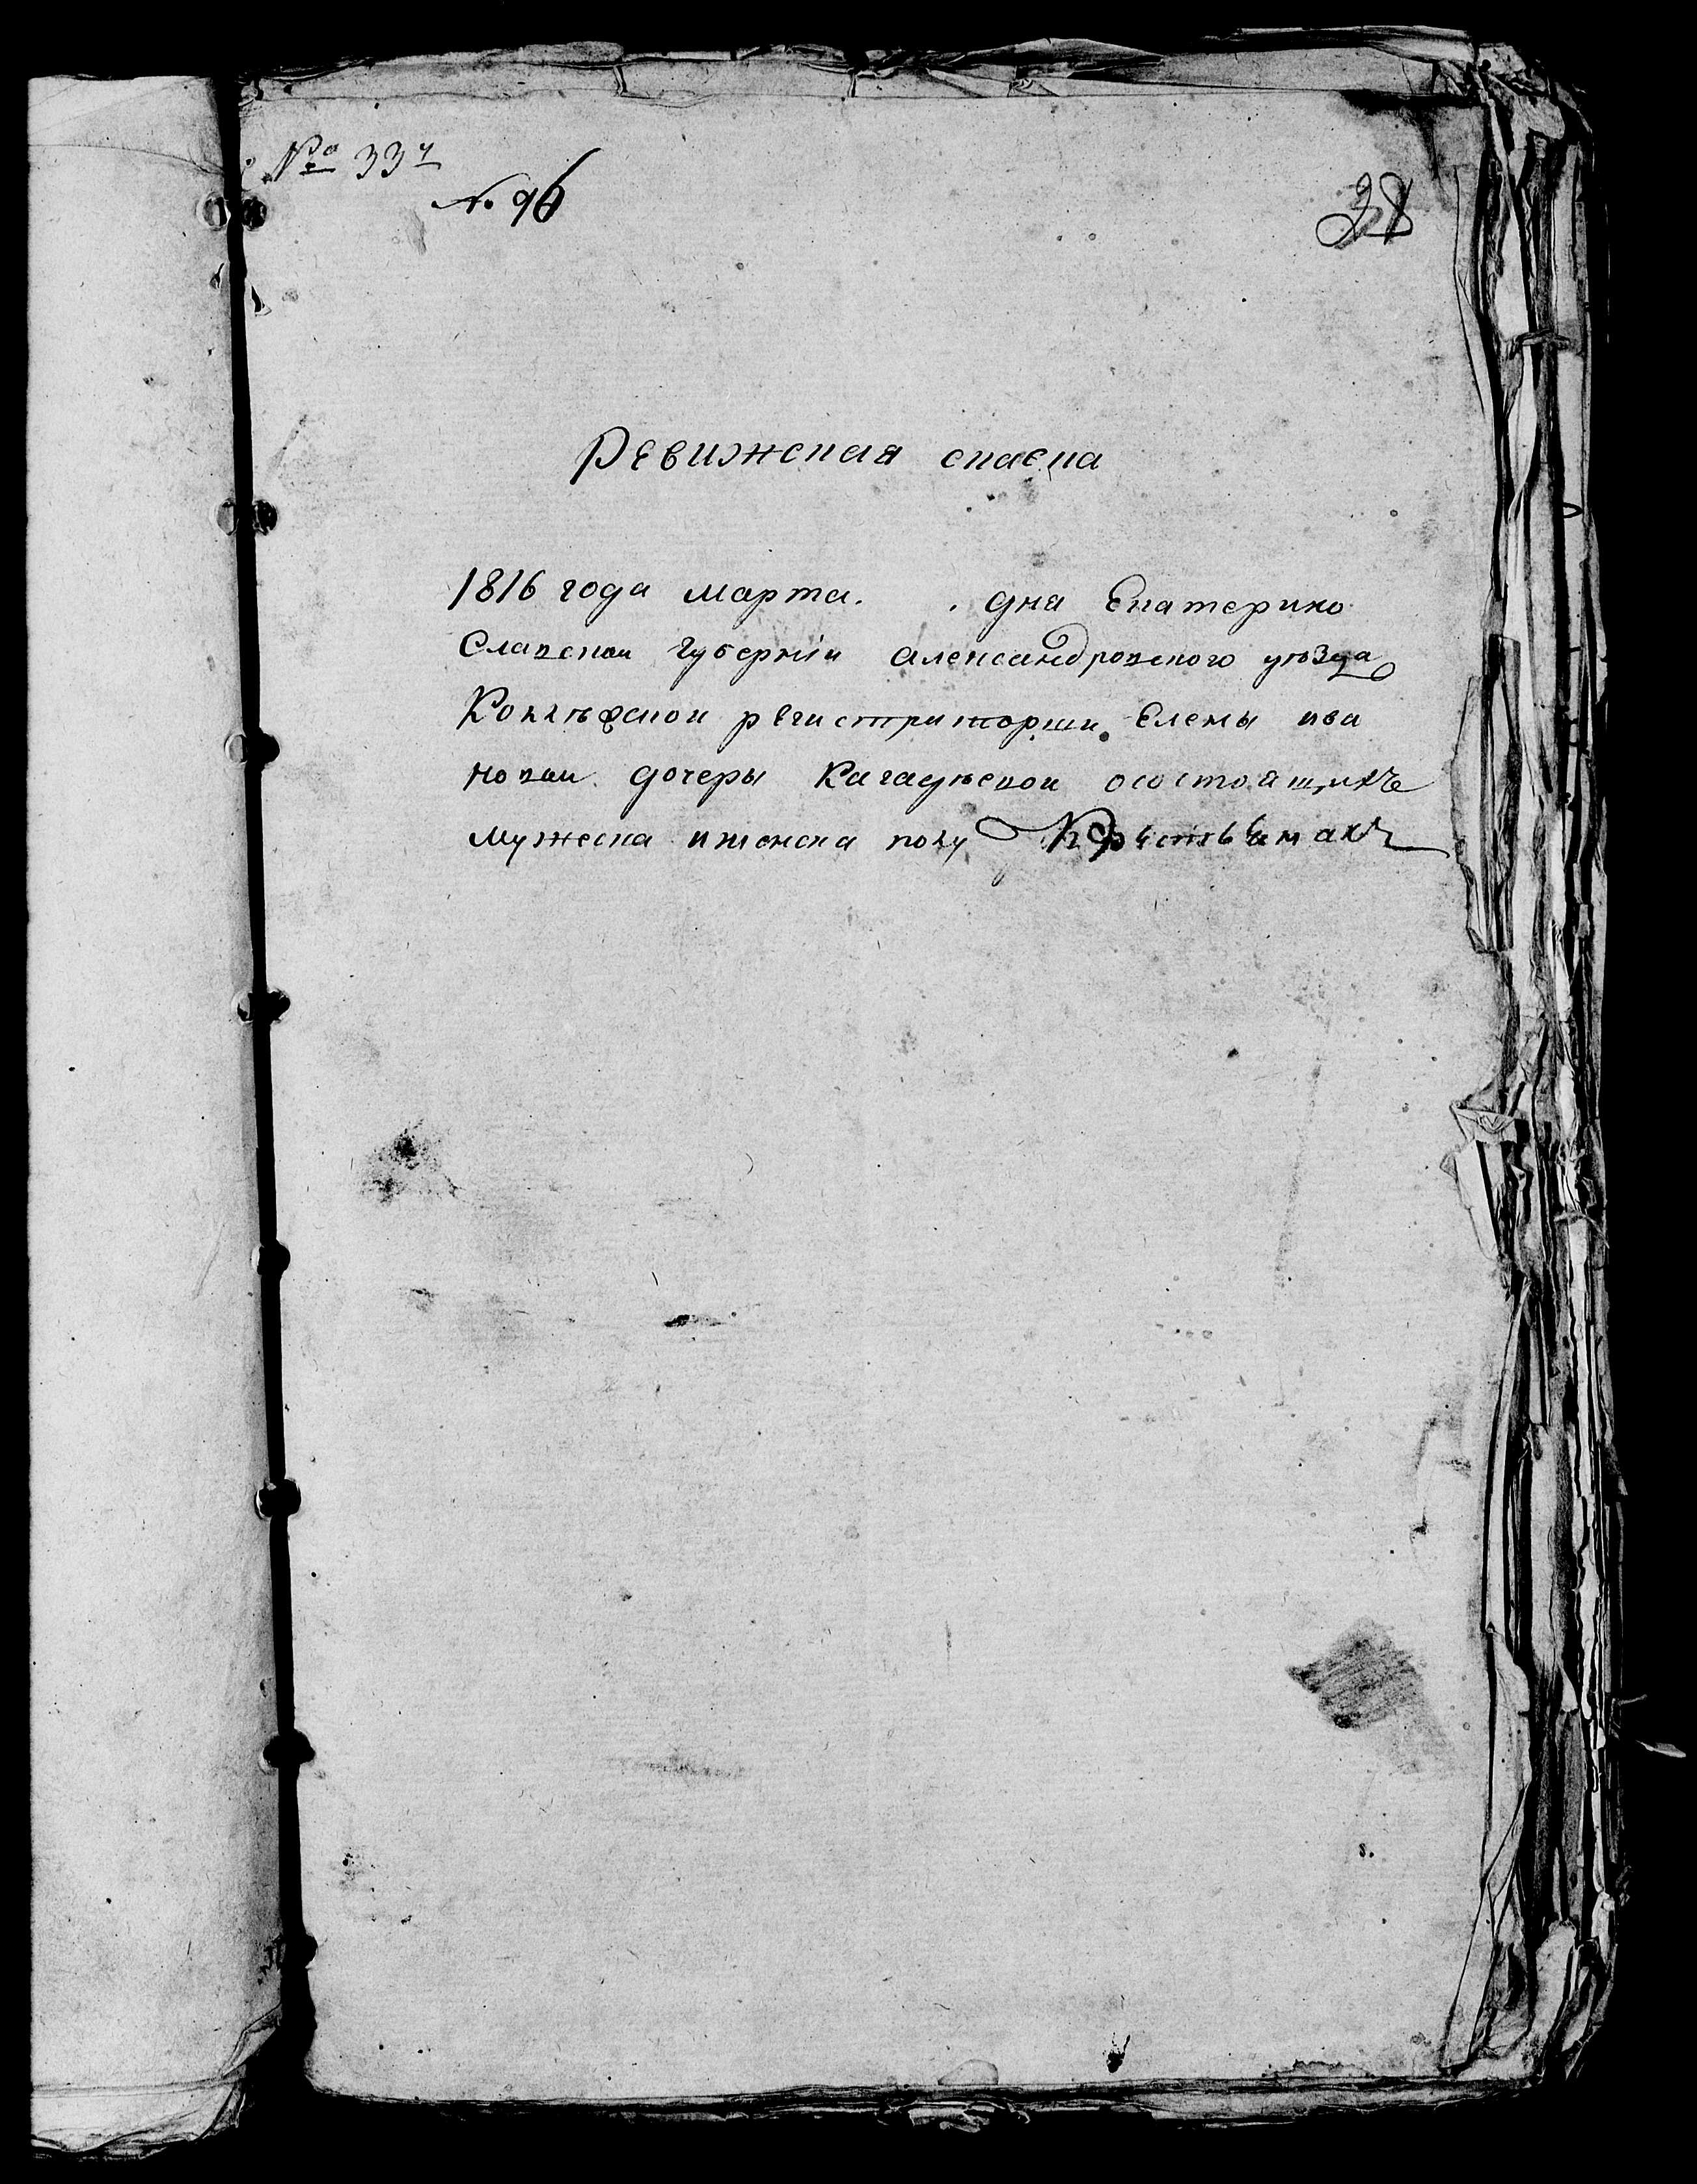 № 337
№ 96
28
Ревижская скаска
1816 года марта. дня Екатерино
Славской губернии александровского уѣзда
Коллѣжской регистриторши Елены ива
новой дочеры Качадѣевой осостоящихъ
мужеска ижснска полу Крестьянахъ